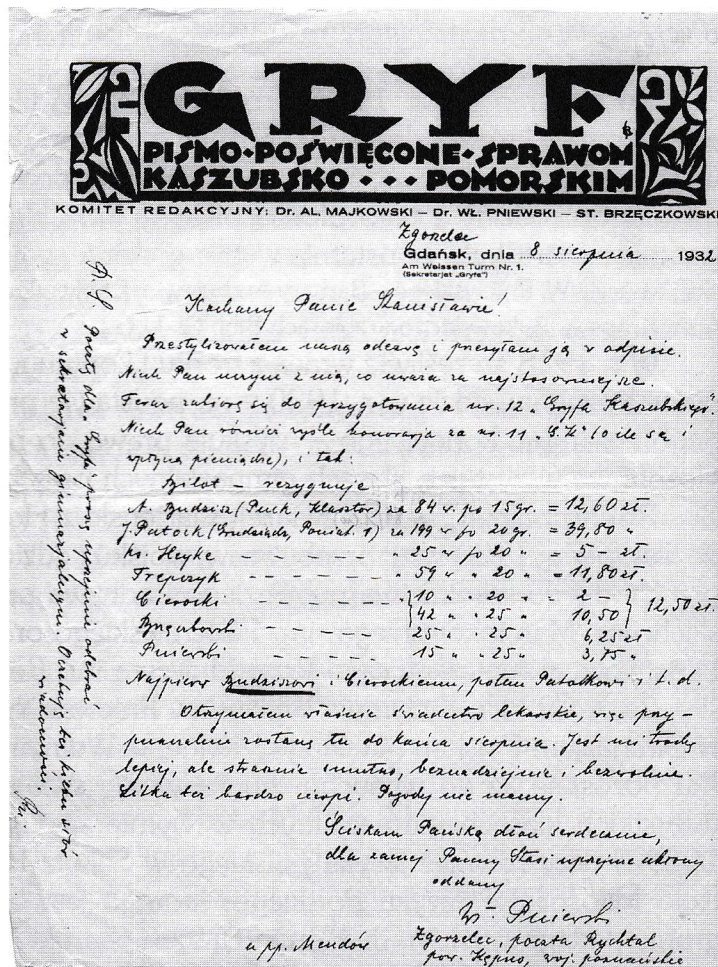 GRYF
PISMO•POŚWIĘCONE•SPRAWOM
KASZUBSKO • • • POMORSKIM
KOMITET REDAKCYJNY: Dr. AL. MAJKOWSKI — Dr. WŁ. PNIEWSKI — ST. BRZĘCZKOWSKI
Zgorzelec
Gdańsk, dnia 8 sierpnia 1932
Am Weissen Turm Nr. 1.
(Sekretarjat „Gryfa")
Kochany Panie Stanisławie!
Przestylizowałem naszą odezwę i przesyłam ją w odpisie.
Niech Pan uczyni z nią, co uważa za najstosowniejsze.
Teraz zabiorę się do przygotowania nr. 12 „Gryfa Kaszubskiego".
Niech Pan również wyśle honorarja za nr. 11 „G.K" (o ile są i
wpłyną pieniądze), i tak:
Bilot — rezygnuje
A. Budzisz (Puck, Klasztor) za 84 w. po 15 gr. = 12,60 zł.
J. Patock (Grudziądz, Poniat. 1) za 199 w po 20 gr. = 39,80 "
ks. Heyke — — — — — " 25 w po 20 " = 5 —zł.
Trepczyk — — — — — " 59 w " 20 " = 11,80 zł.
Cierocki — — — — — " 10 " " 20 " = 2 —
42 " " 25 " 10,50 } 12,50 zł.
— — 25 " " 25 " 6,25 zł
Pniewski — — 15 " " 25 " 3,75 "
Najpierw Budziszowi i Cierockiemu, potem Patokowi i t. d.
Otrzymałem właśnie świadectwo lekarskie, więc przy-
puszczalnie zostanę tu do końca sierpnia. Jest mi trochę
lepiej, ale strasznie smutno, beznadziejnie i bezwolnie.
Lilka też bardzo cierpi. Pogody nie mamy.
Ściskam Pańską dłoń serdecznie,
dla zacnej Panny Stasi uprzejme ukłony
oddany
Wł. Pniewski
u pp. Mendów
Zgorzelec, poczta Rychtal
pow. Kępno, woj. poznańskie
P. S. Pocztę dla „Gryfa" proszę uprzejmie odebrać
w sekretarjacie gimnazjalnym. Oczekuję też kilku słów
wiadomości.
Pn.